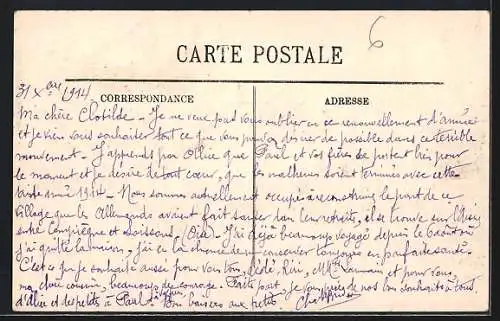 6
CARTE POSTALE
31 Xbre 1914
CORRESPONDANCE
ADRESSE
Ma chère Clotilde. Je ne veux pas vous oublier en ce renouvellement d'année
et je viens vous souhaiter tout ce que vous pouvez désirer de possible dans ce terrible
mouvement. J'apprends par Ollie que Paul et vos frères se portent bien pour
le moment et je désire de tout cœur, que les malheurs soient terminés avec cette
année 1914. Nous sommes actuellement occupés à reconstruire le pont de ce
village que les Allemands avaient fait sauter dans leur retraite, il se trouve sur l'Aisne
entre Compiègne et Soissons (Oise). J'ai déjà beaucoup voyagé depuis le 6 août où
j'ai quitté la maison, j'ai eu la chance de me conserver toujours en parfaite santé.
C'est ce que je souhaite aussi pour vous tous, Mme et pour vous,
ma chère cousine, beaucoup de courage. Faites part, je vous prie, de nos bons souhaits à tous
et des petits à Paul. Bons baisers aux petits.